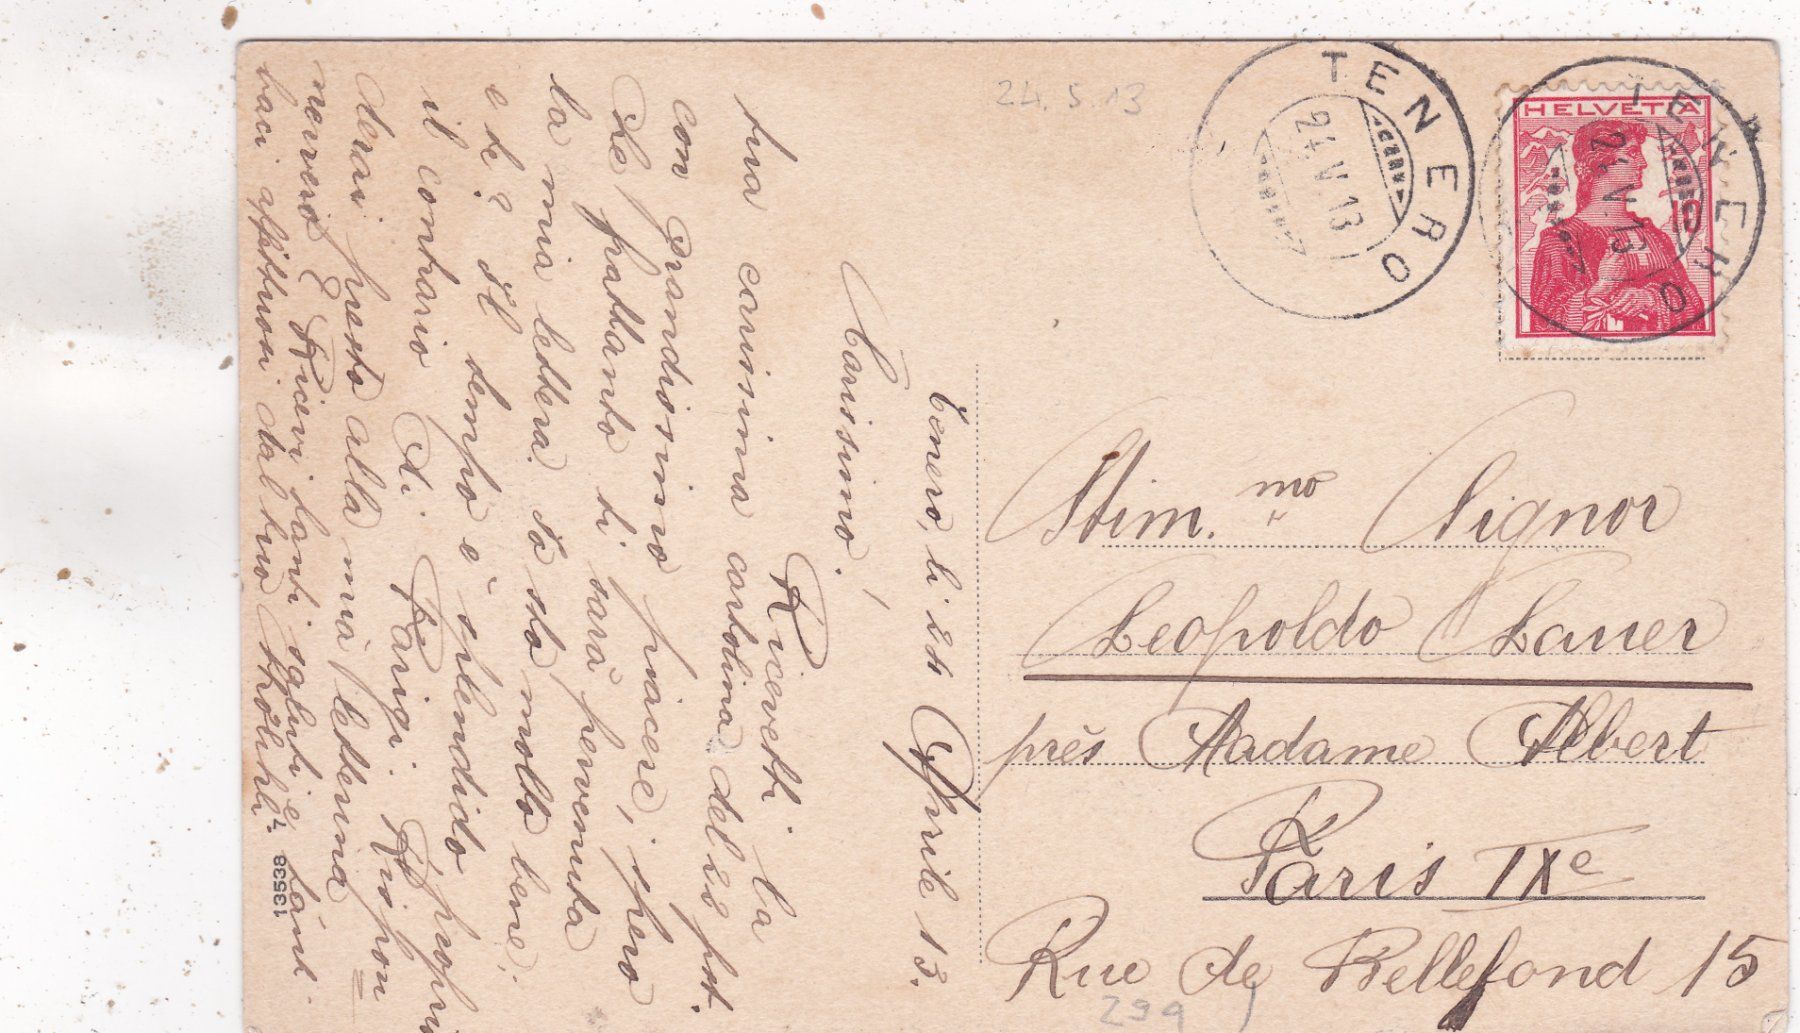 Tenero, li 24 Aprile 13.
Carissimo,
Ricevetti la
tua carissima cartolina del 20 pst.
con grandissimo piacere, spero
che frattanto ti sarà pervenuta
la mia lettera. Io sto molto bene.
e te? Il tempo è splendido
il contrario di Parigi.
derai presto alla mia letterina
nevvero? E Ricevi tanti saluti e
baci affettuosi dal tuo
24. 5. 13
TENERO
24.V.13
HELVETIA
10
TENERO
24.V.13
Stim.mo Signor
Leopoldo Lauer
près Madame Albert
Paris IXe
Rue de Bellefond 15
299
13538